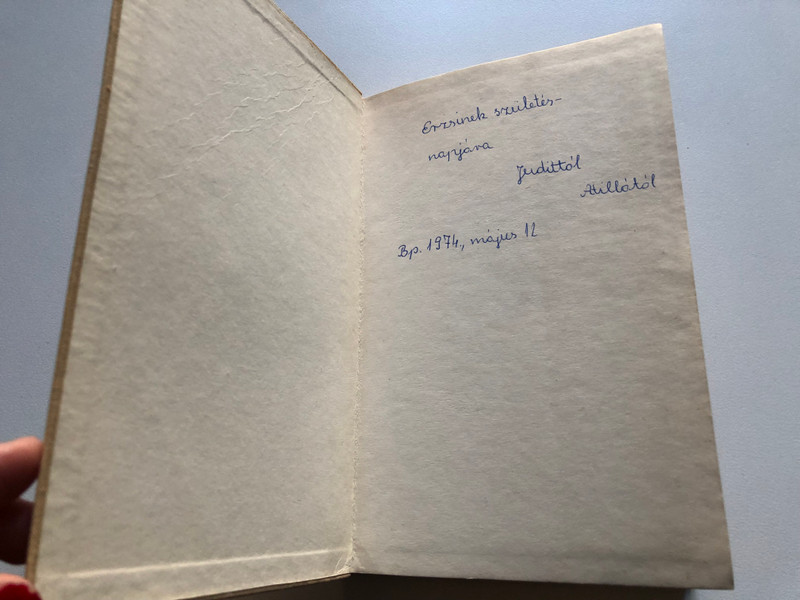 Erzsinek születés-
napjára
Judittól
Atillától
Bp. 1974., május 12